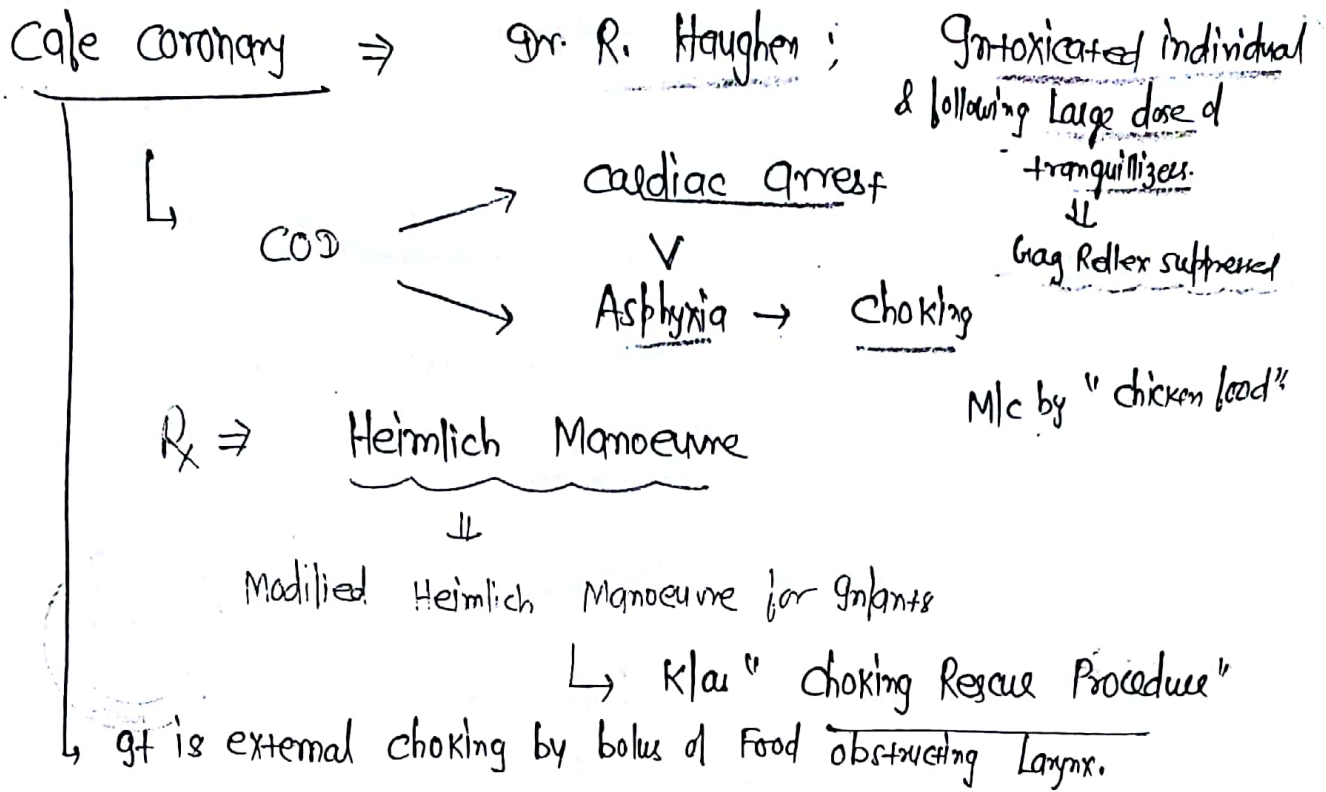 Cafe Coronary ⇒ Dr. R. Haughen ; Intoxicated individual
& following Large dose of
tranquillizers.
⇓
Gag Reflex suppressed
↳ COD → Cardiac arrest
V
→ Asphyxia → Choking
M/c by "chicken food"
Rx ⇒ Heimlich Manoeuvre
⇓
Modified Heimlich Manoeuvre for Infants
↳ K/as "Choking Rescue Procedure"
↳ It is external choking by bolus of Food obstructing Larynx.